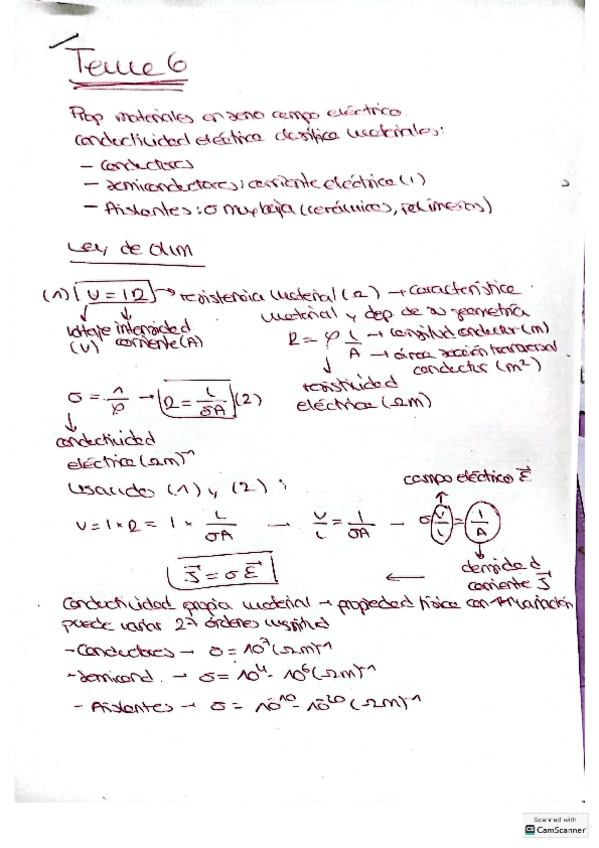 Tema 6
Prop materiales en seno campo eléctrico.
conductividad eléctrica clasifica materiales:
- Conductores
- semiconductores: corriente eléctrica (1)
- Aislantes: σ muy baja (cerámicos, polímeros)
Ley de Ohm
(1) V = I R → resistencia material (Ω) → característica
material y dep de su geometría
voltaje (V)
intensidad corriente (A)
R = ρ L/A
→ longitud conductor (m)
→ área sección transversal conductor (m²)
resistividad eléctrica (Ωm)
σ = 1/ρ → R = L/σA (2)
conductividad
eléctrica (Ωm)⁻¹
usando (1) y (2):
campo eléctrico E⃗
V = I × R = I × L/σA — V/L = I/σA — σ V/L = I/A
densidad corriente J⃗
J⃗ = σ E⃗ ←
Conductividad propia material → propiedad física con + variación
puede variar 27 órdenes magnitud
- Conductores → σ = 10⁷ (Ωm)⁻¹
- semicond. → σ = 10⁴ - 10⁶ (Ωm)⁻¹
- Aislantes → σ = 10⁻¹⁰ - 10⁻²⁰ (Ωm)⁻¹
Scanned with
CamScanner